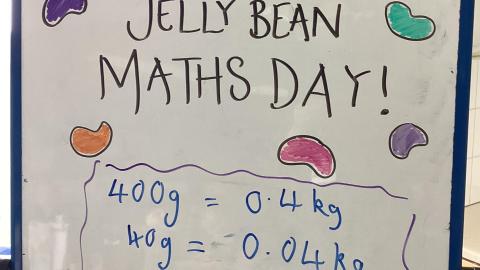 JELLY BEAN
MATHS DAY!
400g = 0.4 kg
40g = 0.04 kg